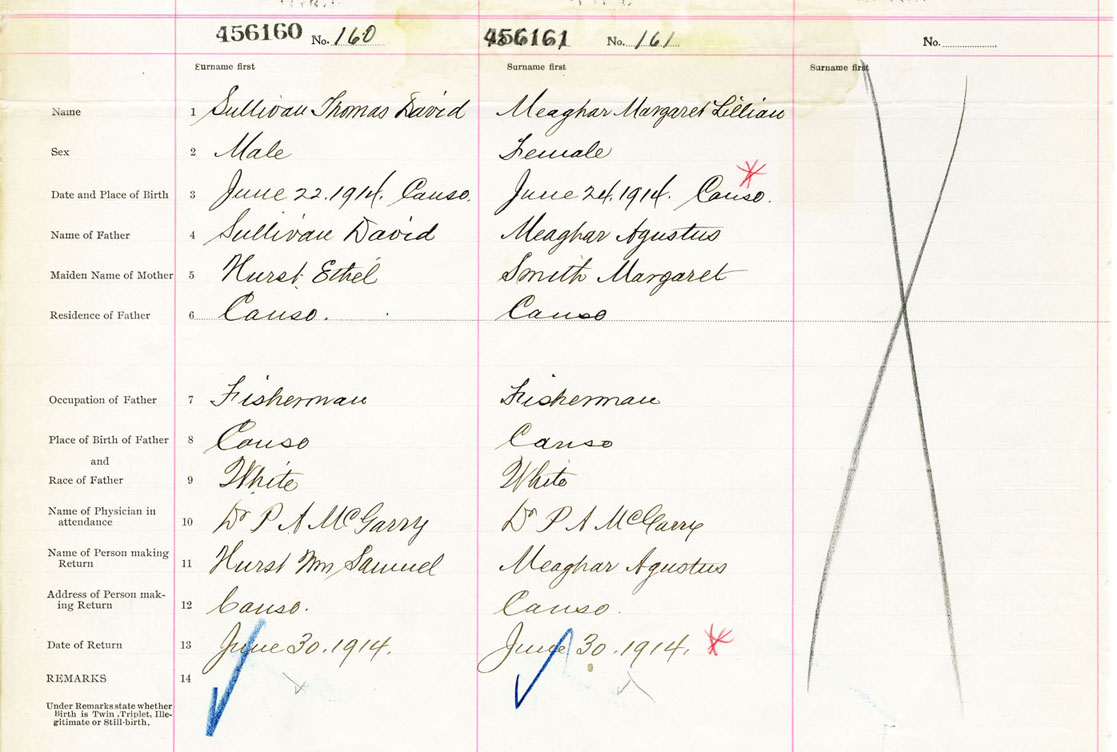 456160 No. 160 456161 No. 161 No.
Surname first Surname first Surname first
Name 1 Sullivan Thomas David Meaghar Margaret Lillian
Sex 2 Male Female
Date and Place of Birth 3 June 22. 1914. Canso. June 24. 1914. Canso.
Name of Father 4 Sullivan David Meaghar Agustus
Maiden Name of Mother 5 Hurst Ethel Smith Margaret
Residence of Father 6 Canso. Canso
Occupation of Father 7 Fisherman Fisherman
Place of Birth of Father 8 Canso Canso
and
Race of Father 9 White White
Name of Physician in
attendance 10 Dr P A McGarry Dr P A McGarry
Name of Person making
Return 11 Hurst Wm Samuel Meaghar Agustus
Address of Person mak-
ing Return 12 Canso. Canso.
Date of Return 13 June 30. 1914. June 30. 1914.
REMARKS 14
Under Remarks state whether
Birth is Twin, Triplet, Ille-
gitimate or Still-birth.